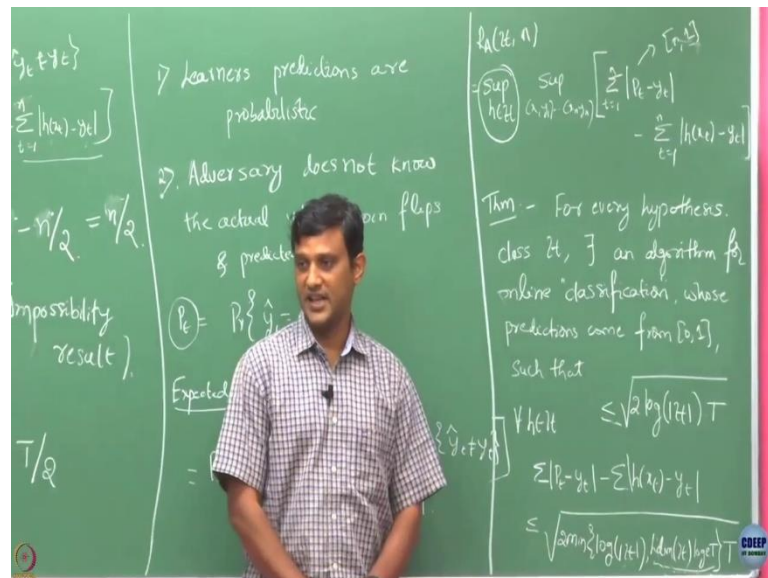 ŷt ≠ yt}
n
Σ |h(xt) - yt|]
t=1
- n/2 = n/2.
Impossibility
result).
T/2
1) Learners predictions are
probabilistic
2) Adversary does not know
the actual
& predicted
Pt = Pr{ŷt =
Expected
=
{ŷt ≠ yt}]
RA(H, n)
= sup sup [Σ |Pt - yt| → [0,1]
h∈H (x1,y1)...(xn,yn) t=1
- Σ |h(xt) - yt|]
t=1
Thm :- For every hypothesis
class H, ∃ an algorithm for
online classification, whose
predictions come from [0,1],
such that
∀ h∈H ≤ √2 log(|H|) T
Σ|Pt - yt| - Σ|h(xt) - yt|
≤ √2min{log(|H|), Ldim(H) log eT} T
CDEEP
IIT BOMBAY